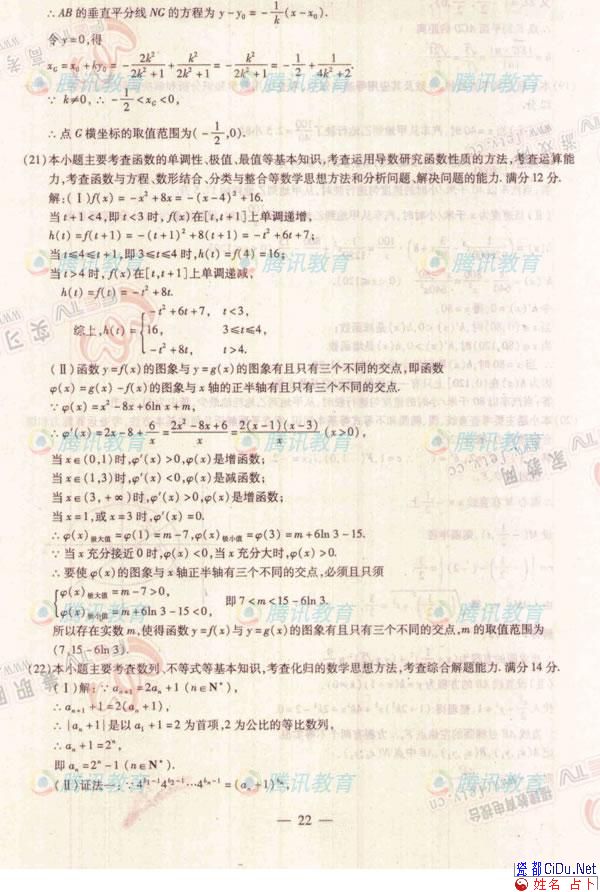 ∴AB的垂直平分线NG的方程为 y-y₀=-1/k(x-x₀).
令y=0,得
x_G=x₀+ky₀=-2k²/(2k²+1)+k²/(2k²+1)=-k²/(2k²+1)=-1/2+1/(4k²+2).
∵ k≠0,∴-1/2<x_G<0,
∴点G横坐标的取值范围为(-1/2,0).
(21)本小题主要考查函数的单调性、极值、最值等基本知识,考查运用导数研究函数性质的方法,考查运算能
力,考查函数与方程、数形结合、分类与整合等数学思想方法和分析问题、解决问题的能力.满分12分.
解:(Ⅰ)f(x)=-x²+8x=-(x-4)²+16.
当t+1<4,即t<3时,f(x)在[t,t+1]上单调递增,
h(t)=f(t+1)=-(t+1)²+8(t+1)=-t²+6t+7;
当t≤4≤t+1,即3≤t≤4时,h(t)=f(4)=16;
当t>4时,f(x)在[t,t+1]上单调递减,
h(t)=f(t)=-t²+8t.
-t²+6t+7, t<3,
综上,h(t)={16, 3≤t≤4,
-t²+8t, t>4.
(Ⅱ)函数y=f(x)的图象与y=g(x)的图象有且只有三个不同的交点,即函数
φ(x)=g(x)-f(x)的图象与x轴的正半轴有且只有三个不同的交点.
∵φ(x)=x²-8x+6ln x+m,
∴φ′(x)=2x-8+6/x=(2x²-8x+6)/x=2(x-1)(x-3)/x(x>0),
当x∈(0,1)时,φ′(x)>0,φ(x)是增函数;
当x∈(1,3)时,φ′(x)<0,φ(x)是减函数;
当x∈(3,+∞)时,φ′(x)>0,φ(x)是增函数;
当x=1,或x=3时,φ′(x)=0.
∴φ(x)极大值=φ(1)=m-7,φ(x)极小值=φ(3)=m+6ln 3-15.
∵当x充分接近0时,φ(x)<0,当x充分大时,φ(x)>0.
∴要使φ(x)的图象与x轴正半轴有三个不同的交点,必须且只须
{φ(x)极大值=m-7>0,
φ(x)极小值=m+6ln 3-15<0, 即7<m<15-6ln 3.
所以存在实数m,使得函数y=f(x)与y=g(x)的图象有且只有三个不同的交点,m的取值范围为
(7,15-6ln 3).
(22)本小题主要考查数列、不等式等基本知识,考查化归的数学思想方法,考查综合解题能力.满分14分.
(Ⅰ)解:∵aₙ₊₁=2aₙ+1(n∈N*),
∴aₙ₊₁+1=2(aₙ+1),
∴{aₙ+1}是以a₁+1=2为首项,2为公比的等比数列,
∴aₙ+1=2ⁿ,
即aₙ=2ⁿ-1(n∈N*).
(Ⅱ)证法一:∵4^(b₁-1)4^(b₂-1)…4^(bₙ-1)=(aₙ+1)^(bₙ),
— 22 —
腾讯教育
瓷都CiDu.Net
姓名 占卜